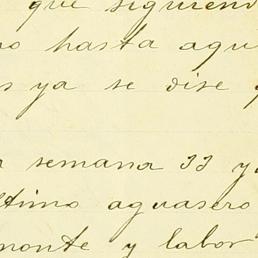 que siguiend
no hasta aqu
s ya se dise
semana 33 y
ltimo aguasero
monte y labor